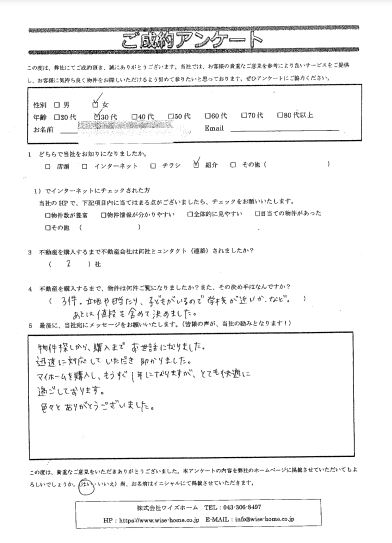 ご成約アンケート
この度は、弊社にてご成約頂き、誠にありがとうございます。当社では、お客様の貴重なご意見を参考により良いサービスをご提供
し、お客様に気持ち良く物件をお探しいただけるよう努めて参りたいと思っております。ぜひアンケートにご協力ください。
性別 □男 □女
年齢 □20代 □30代 □40代 □50代 □60代 □70代 □80代以上
お名前 Email
1 どちらで当社をお知りになりましたか。
□ 店頭 □ インターネット □ チラシ □ 紹介 □ その他（ ）
1）でインターネットにチェックされた方
当社のHPで、下記項目内に当てはまる点がございましたら、チェックをお願いいたします。
□物件数が豊富 □物件情報が分かりやすい □全体的に見やすい □目当ての物件があった
□その他（ ）
3 不動産を購入するまで不動産会社は何社とコンタクト（連絡）されましたか？
（ 2 ）社
4 不動産を購入するまで、物件は何件ご覧になりましたか？また、その決め手はなんですか？
（ 3件。立地や日当たり、子どもがいるので学校が近いか、など。）
あとは値段も含めて決めました。
5 最後に、当社宛にメッセージをお願いいたします。（皆様の声が、当社の励みとなります！）
物件探しから、購入まで お世話になりました。
迅速に対応して いただき 助かりました。
マイホームを購入し、もうすぐ1年になりますが、とても快適に
過ごしております。
色々と ありがとうございました。
この度は、貴重なご意見をいただきありがとうございました。本アンケートの内容を弊社のホームページに掲載させていただいてもよ
ろしいでしょうか。（はい・いいえ）尚、お名前はイニシャルにて掲載させていただきます。
株式会社ワイズホーム TEL：043-306-8497
HP：https://www.wise-home.co.jp E-MAIL：info@wise-home.co.jp